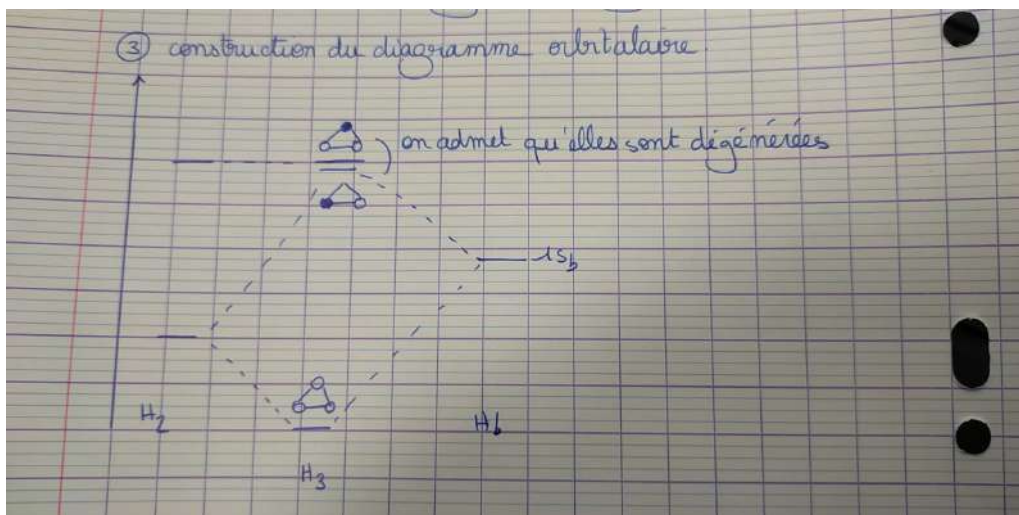 ③ construction du diagramme orbitalaire
on admet qu'elles sont dégénérées
1s_b
H_2
H_b
H_3